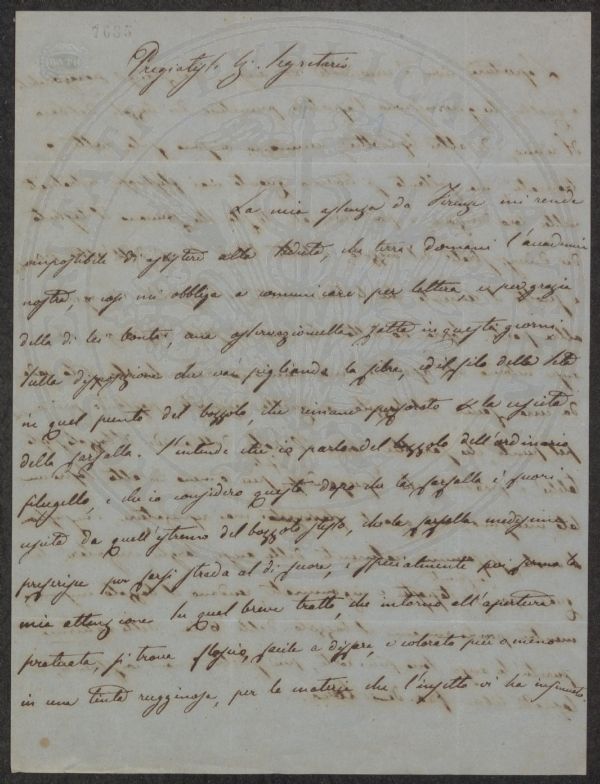 7635
Pregiatiss. Sig. Segretario
La mia assenza da Firenze mi rende
impossibile di assistere alla seduta, che terrà domani l'Accademia
nostra, e così mi obbliga a comunicare per lettera e per grazia
della di lei bontà, una osservazioncella fatta in questi giorni
sulla disposizione che van pigliando la fibra, ed il filo della seta
in quel punto del bozzolo, che rimane perforato la uscita
della farfalla. S'intende che io parlo del bozzolo dell'ordinario
filugello, e che io considero questo dopo che la farfalla è fuori
uscita da quell'estremo del bozzolo stesso, che la farfalla medesima
preferisce per farsi strada al di fuore, e specialmente poi fermo la
mia attenzione su quel breve tratto, che intorno all'apertura
praticata, si trova floscio, facile a disfare e colorato più o meno
in una tinta rugginosa, per la materia che l'insetto vi ha